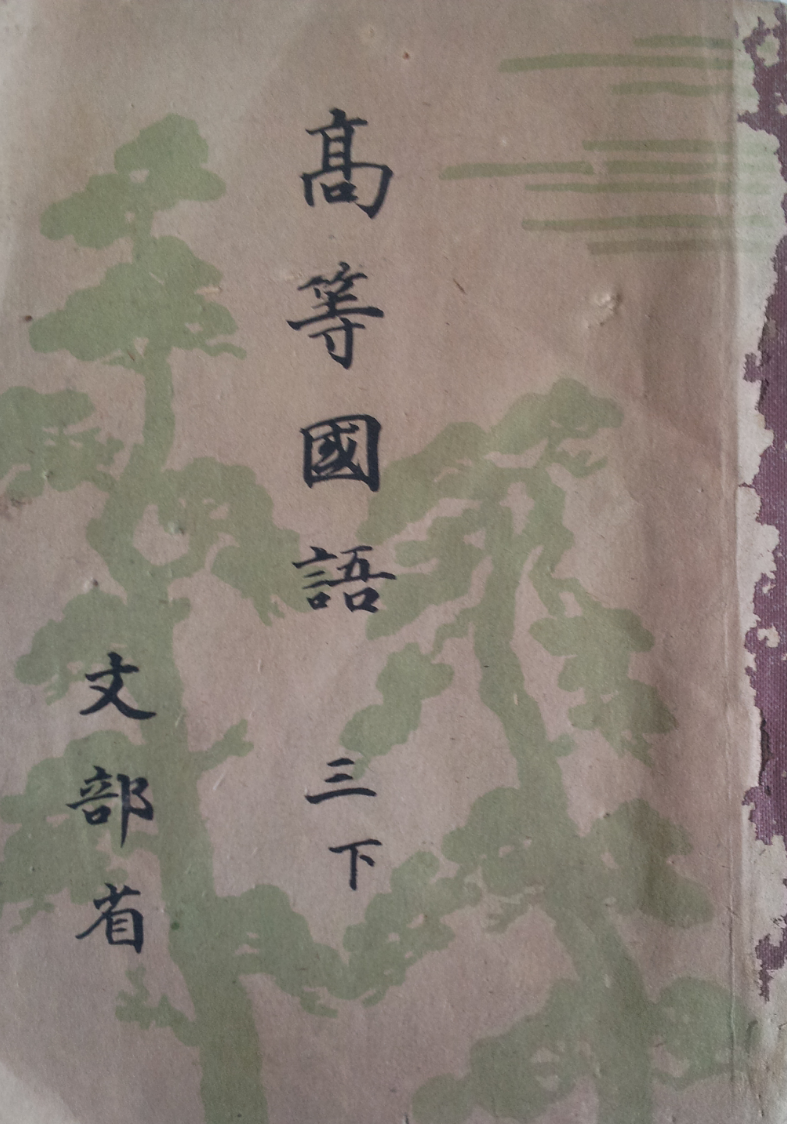 髙等國語 三下
文部省